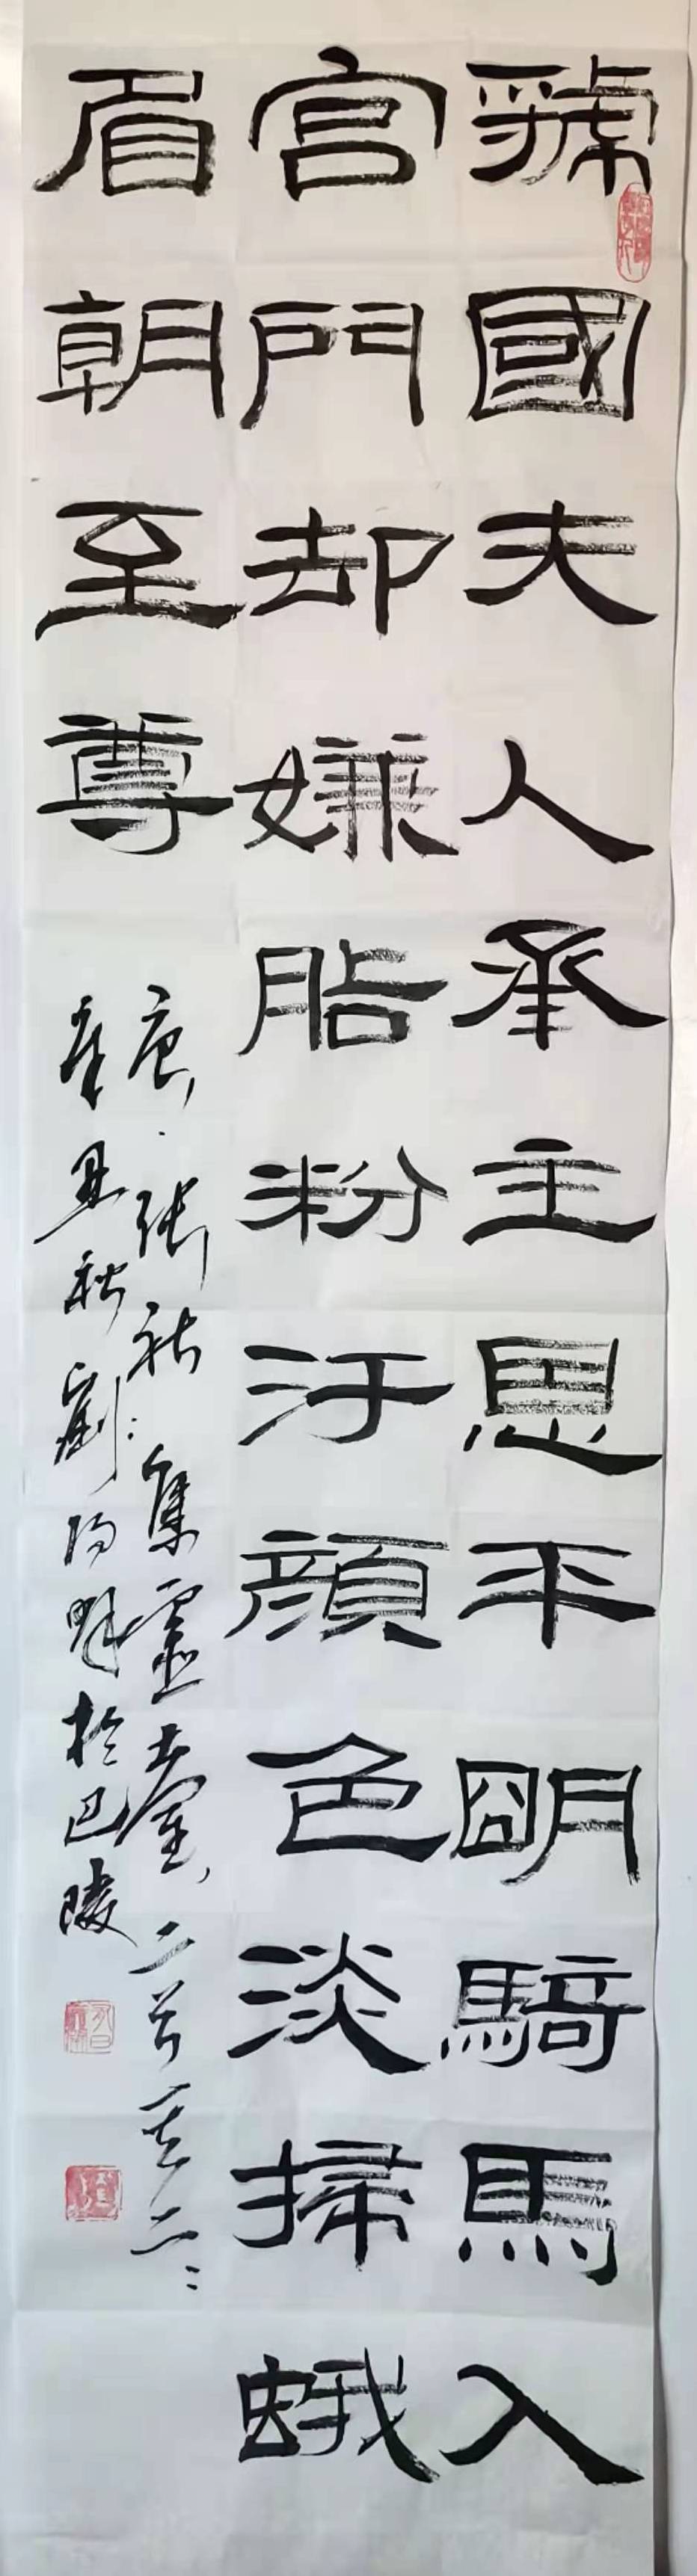 虢國夫人承主恩平明騎馬入
宮門却嫌脂粉汙顏色淡掃蛾
眉朝至尊
唐、張祜：集靈臺、二首其二：
辛丑秋劉於巴陵